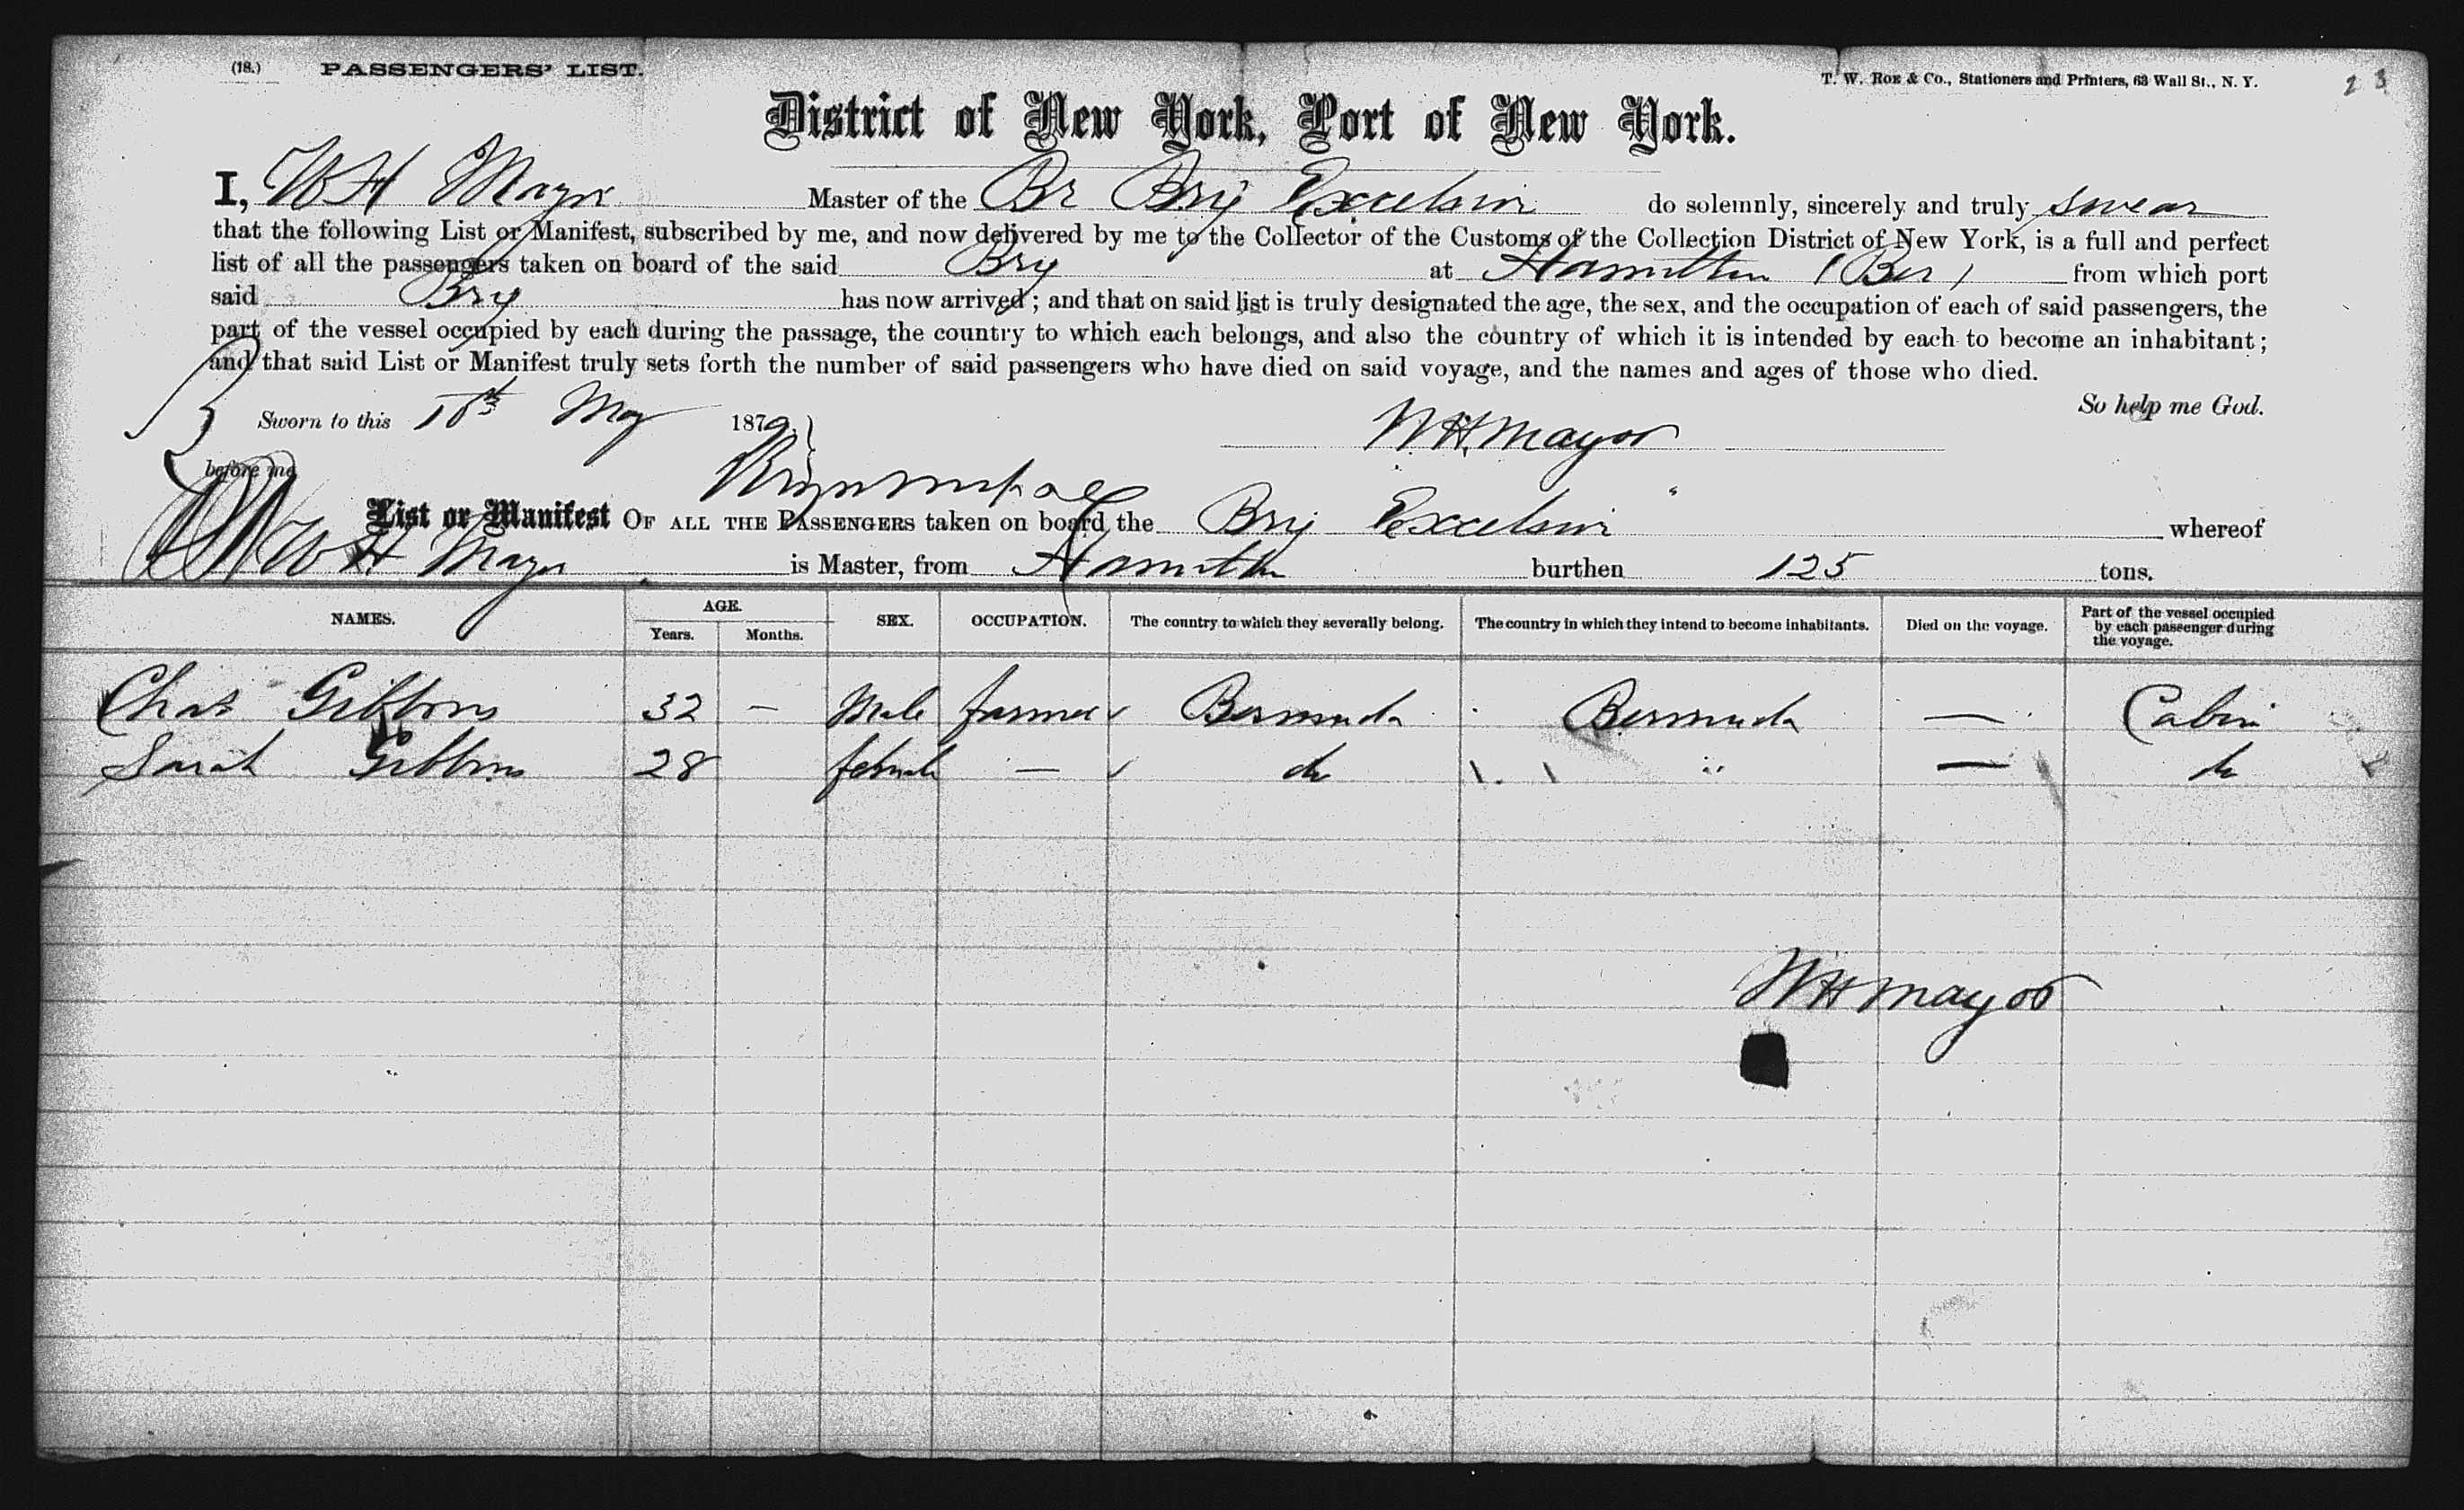 (18.) PASSENGERS' LIST. T. W. ROE & Co., Stationers and Printers, 63 Wall St., N. Y. 23
District of New York, Port of New York.
I, W H Mayor Master of the Br Brig Excelsior do solemnly, sincerely and truly swear
that the following List or Manifest, subscribed by me, and now delivered by me to the Collector of the Customs of the Collection District of New York, is a full and perfect
list of all the passengers taken on board of the said Brig at Hamilton (Ber) from which port
said Brig has now arrived; and that on said list is truly designated the age, the sex, and the occupation of each of said passengers, the
part of the vessel occupied by each during the passage, the country to which each belongs, and also the country of which it is intended by each to become an inhabitant;
and that said List or Manifest truly sets forth the number of said passengers who have died on said voyage, and the names and ages of those who died.
So help me God.
Sworn to this May 1879.
W H Mayor
before me
List or Manifest OF ALL THE PASSENGERS taken on board the Brig Excelsior whereof
W H Mayor is Master, from Hamilton burthen 125 tons.
NAMES. AGE. Years. Months. SEX. OCCUPATION. The country to which they severally belong. The country in which they intend to become inhabitants. Died on the voyage. Part of the vessel occupied by each passenger during the voyage.
Chas Gibbons 32 — Male farmer Bermuda Bermuda — Cabin
Sarah Gibbons 28 female — do " — do
W H Mayor